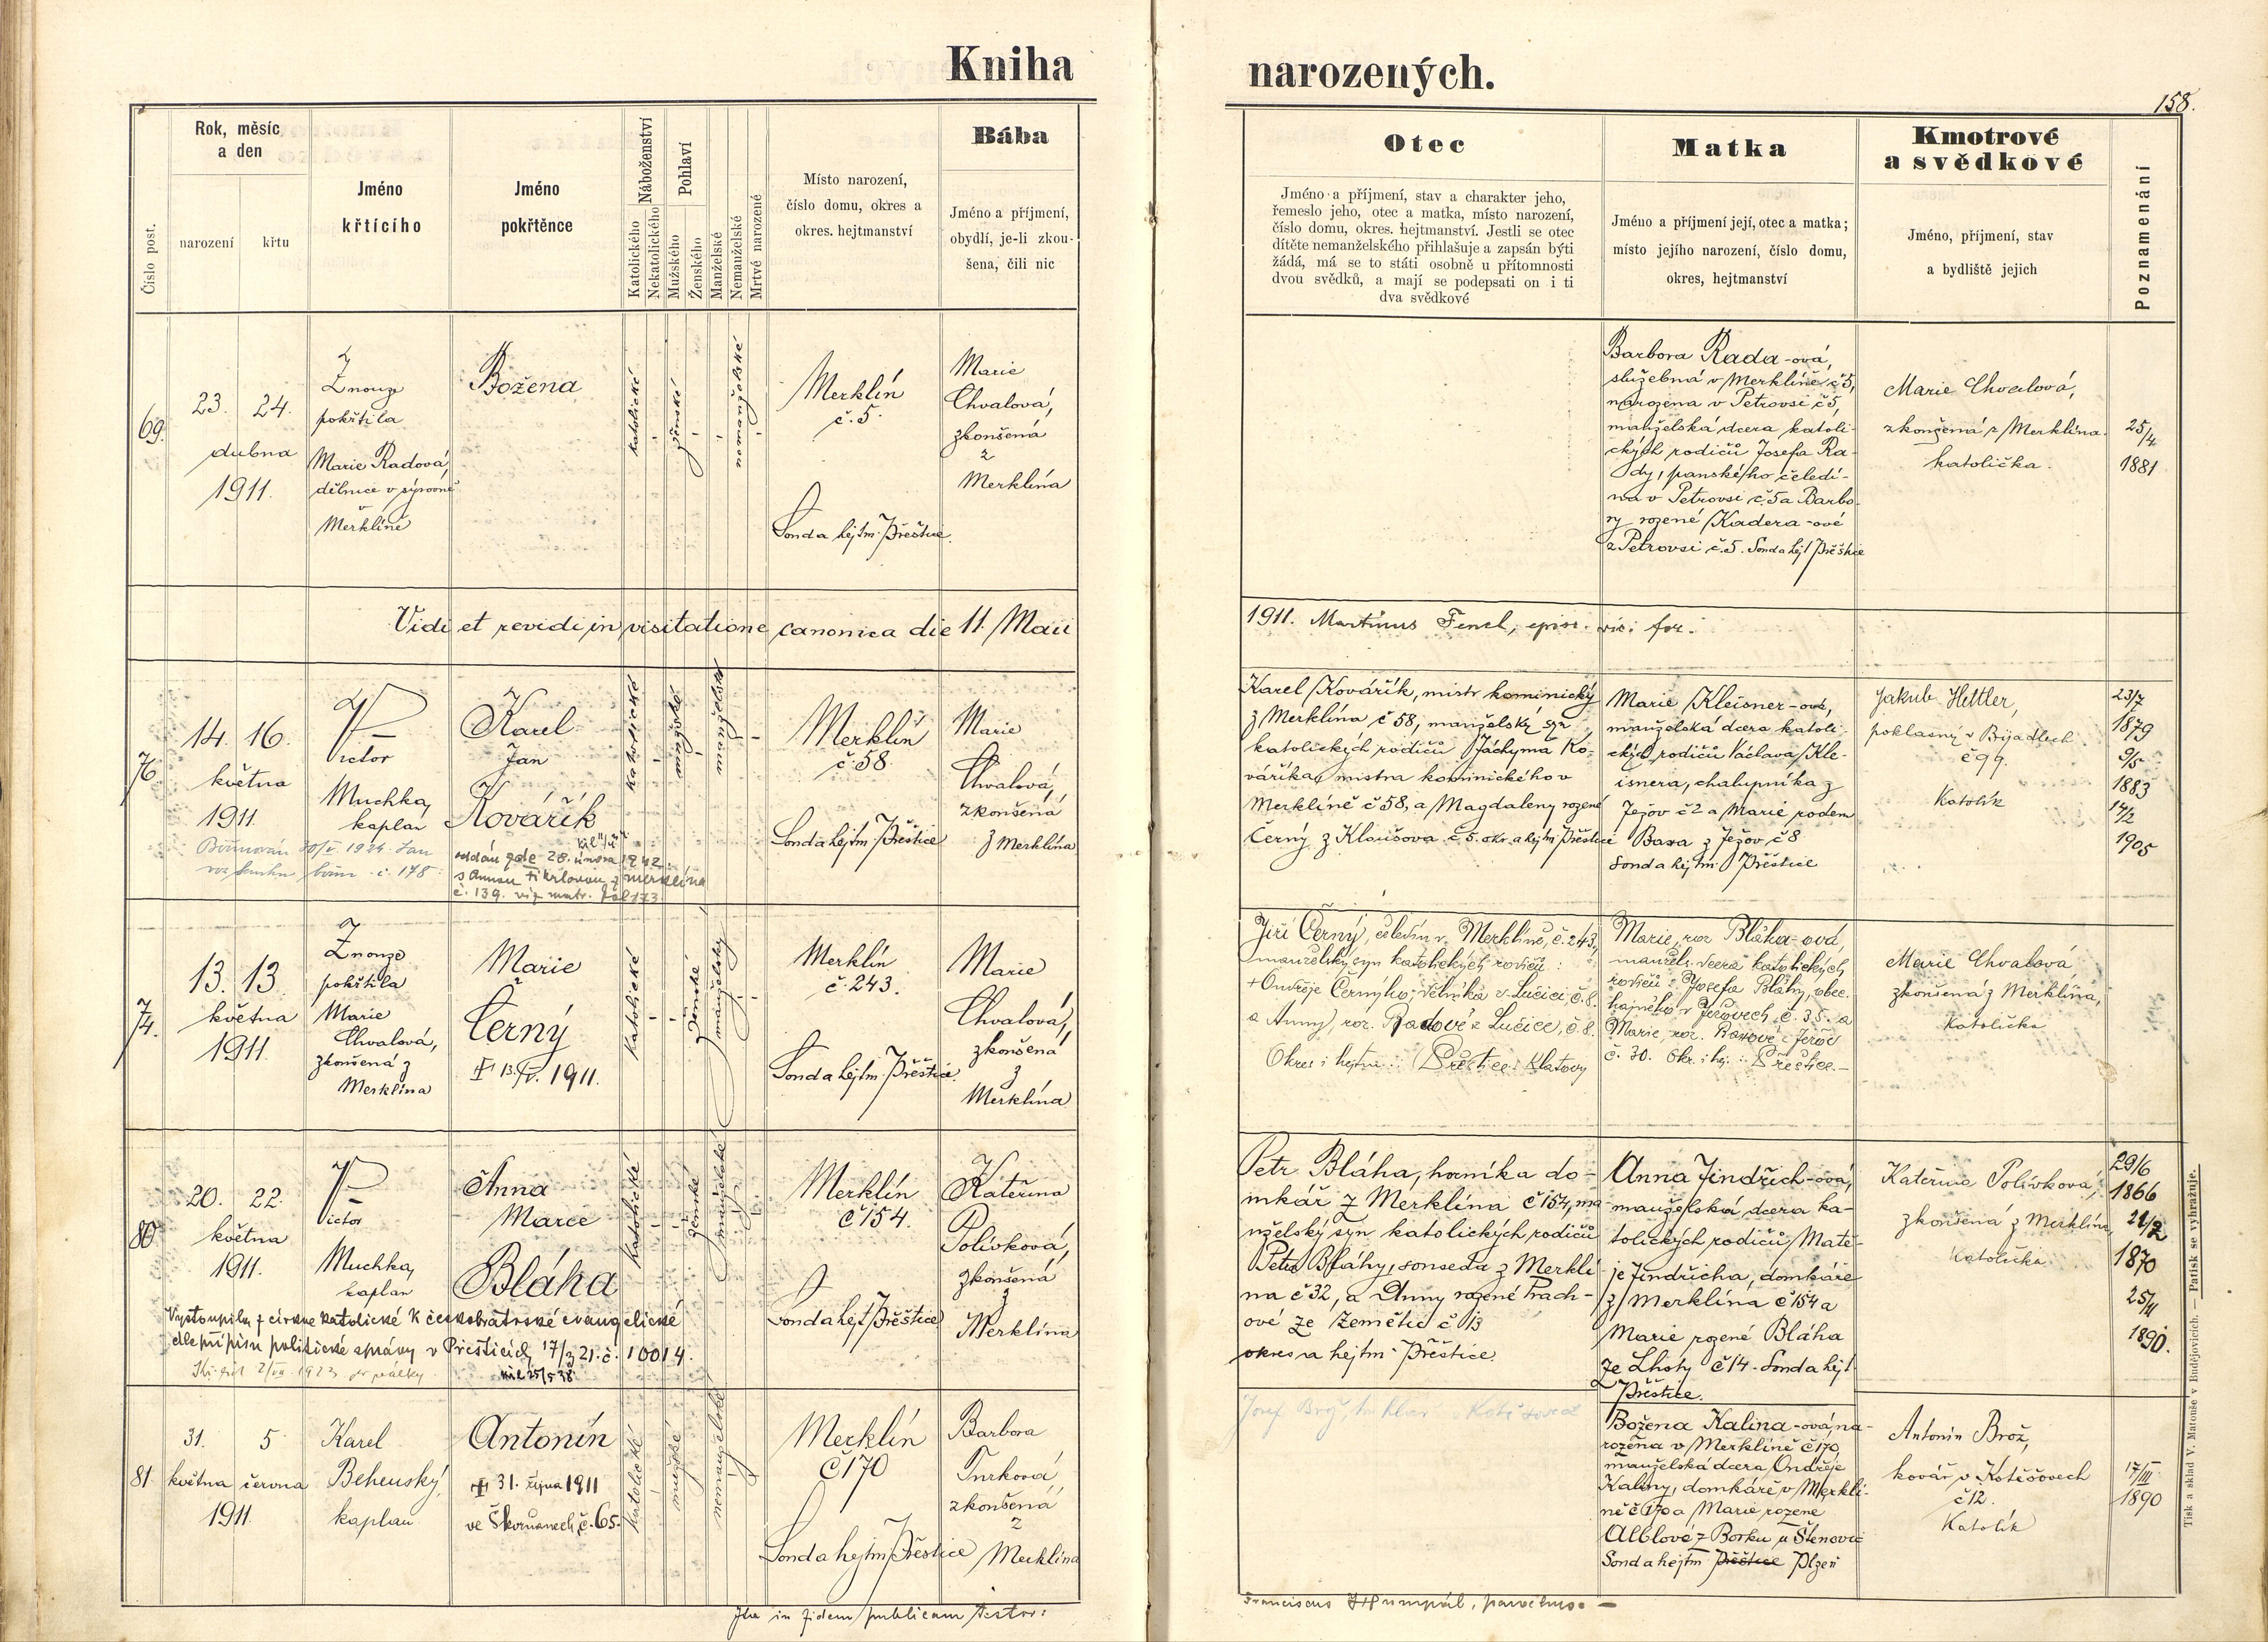 Kniha
narozených.
158.
Číslo post.
Rok, měsíc
a den
narození
křtu
Jméno
křtícího
Jméno
pokřtěnce
Náboženství
Katolického
Nekatolického
Pohlaví
Mužského
Ženského
Manželské
Nemanželské
Mrtvé narozené
Místo narození,
číslo domu, okres a
okres. hejtmanství
Bába
Jméno a příjmení,
obydlí, je-li zkou-
šena, čili nic
Otec
Jméno a příjmení, stav a charakter jeho,
řemeslo jeho, otec a matka, místo narození,
číslo domu, okres. hejtmanství. Jestli se otec
dítěte nemanželského přihlašuje a zapsán býti
žádá, má se to státi osobně u přítomnosti
dvou svědků, a mají se podepsati on i ti
dva svědkové
Matka
Jméno a příjmení její, otec a matka;
místo jejího narození, číslo domu,
okres, hejtmanství
Kmotrové
a svědkové
Jméno, příjmení, stav
a bydliště jejich
Poznamenání
69.
23. 24.
dubna
1911.
Z nouze
pokřtila
Marie Radová,
dělnice v sýrovně
Merklíně
Božena
katolické
ženské
nemanželské
Merklín
č. 5.
Soud a hejtm. Přeštice.
Marie
Chvalová,
zkoušená
z
Merklína
Barbora Rada-ová,
služebná v Merklíně č 5,
narozena v Petrovsi č 5,
manželská dcera katoli-
ckých rodičů Josefa Ra-
dy, panského čeledí-
na v Petrovsi č. 5 a Barbo-
ry rozené Kadera-ové
z Petrovsi č. 5. Soud a hejt Přeštice
Marie Chvalová,
zkoušená z Merklína.
katolička.
25/4
1881
Vidi et revidi in visitatione canonica die 11. Maii
1911. Martinus Fencl, episc. vic. for.
76.
14. 16.
května
1911.
Victor
Muchka,
kaplan
Karel
Jan
Kovářík
oddán zde 28. února 1942.
č. 139. viz matr. fol 173
katolické
mužské
manželské
Merklín
č. 58.
Soud a hejtm. Přeštice
Marie
Chvalová,
zkoušená
z Merklína
Karel Kovářík, mistr kominický
z Merklína č 58, manželský syn
katolických rodičů Jáchyma Ko-
vaříka, mistra kominického v
Merklíně č 58, a Magdaleny rozené
Černý z Klaušova č 5. okr. a hejtm. Přeštice
Marie Kleisner-ová,
manželská dcera katoli-
ckých rodičů Václava Kle-
isnera, chalupníka z
Ježov č 2 a Marie rodem
Baxa z Ježov č 8
Soud a hejtm. Přeštice
Jakub Hettler,
č 99.
Katolík
23/7
1879
9/5
1883
17/2
1905
74.
13. 13.
května
1911
Z nouze
pokřtila
Marie
Chvalová,
zkoušená z
Merklína
Marie
Černý
13. V. 1911.
katolické
ženské
manželské
Merklín
č. 243.
Soud a hejtm. Přeštice.
Marie
Chvalová,
zkoušená
z
Merklína
Jiří Černý, čeledín v Merklíně, č. 243,
manželský syn katolických rodičů:
+ Ondřeje Černýho, dělníka v Lučici, č. 8.
a Anny, roz. Radové z Lučice, č. 8.
Okres i hejtm.: Přeštice: Klatovy
Marie, roz. Bláha-ová,
manžels. dcera katolických
rodičů: Josefa Bláhy, obec.
hajného v Ježovech, č. 35. a
Marie, roz. Baxové z Ježov
č. 30. Okr. i hej.: Přeštice.—
Marie Chvalová
zkoušená z Merklína,
Katolička
80.
20. 22.
května
1911.
Victor
Muchka,
kaplan
Anna
Marie
Bláha
Vystoupila z církve katolické k českobratrské evangelické
dle přípisu politické správy v Přešticích 17/3 21. č. 10014.
katolické
ženské
manželské
Merklín
č 154.
Soud a hejt Přeštice
Kateřina
Polívková,
zkoušená
z
Merklína
Petr Bláha, horník a do-
mkář z Merklína č 154, ma-
nželský syn katolických rodičů
Petra Bláhy, souseda z Merklí-
na č 32, a Anny rozené Prach-
ové ze Zemětic č 13
okres a hejtm. Přeštice.
Anna Jindřich-ová,
manželská dcera ka-
tolických rodičů Matě-
je Jindřicha, domkáře
z Merklína č 154 a
Marie rozené Bláha
ze Lhoty č 14. Soud a hejt
Přeštice.
Kateřina Polívková,
zkoušená z Merklína
Katolička
29/6
1866
21/2
1870
25/4
1890.
81.
31. 5
května června
1911.
Karel
Behenský,
kaplan
Antonín
31. října 1911
ve Škvrňanech č. 65.
katolické
mužské
nemanželské
Merklín
č 170
Soud a hejtm Přeštice
Barbora
Turková
zkoušená
z
Merklína
Božena Kalina-ová, na-
rozena v Merklíně č 170,
manželská dcera Ondřeje
Kaliny, domkáře v Merklí-
ně č 170 a Marie rozené
Alblové z Borku u Štěnovic
Soud a hejtm Přeštice Plzeň
Antonín Brož,
kovář v Kotěšovech
č 12.
Katolík
17/III
1890
Ita in fidem publicam testor:
Franciscus Humpál, parochus.—
Tisk a sklad V. Matouše v Budějovicích. — Patisk se vyhražuje.